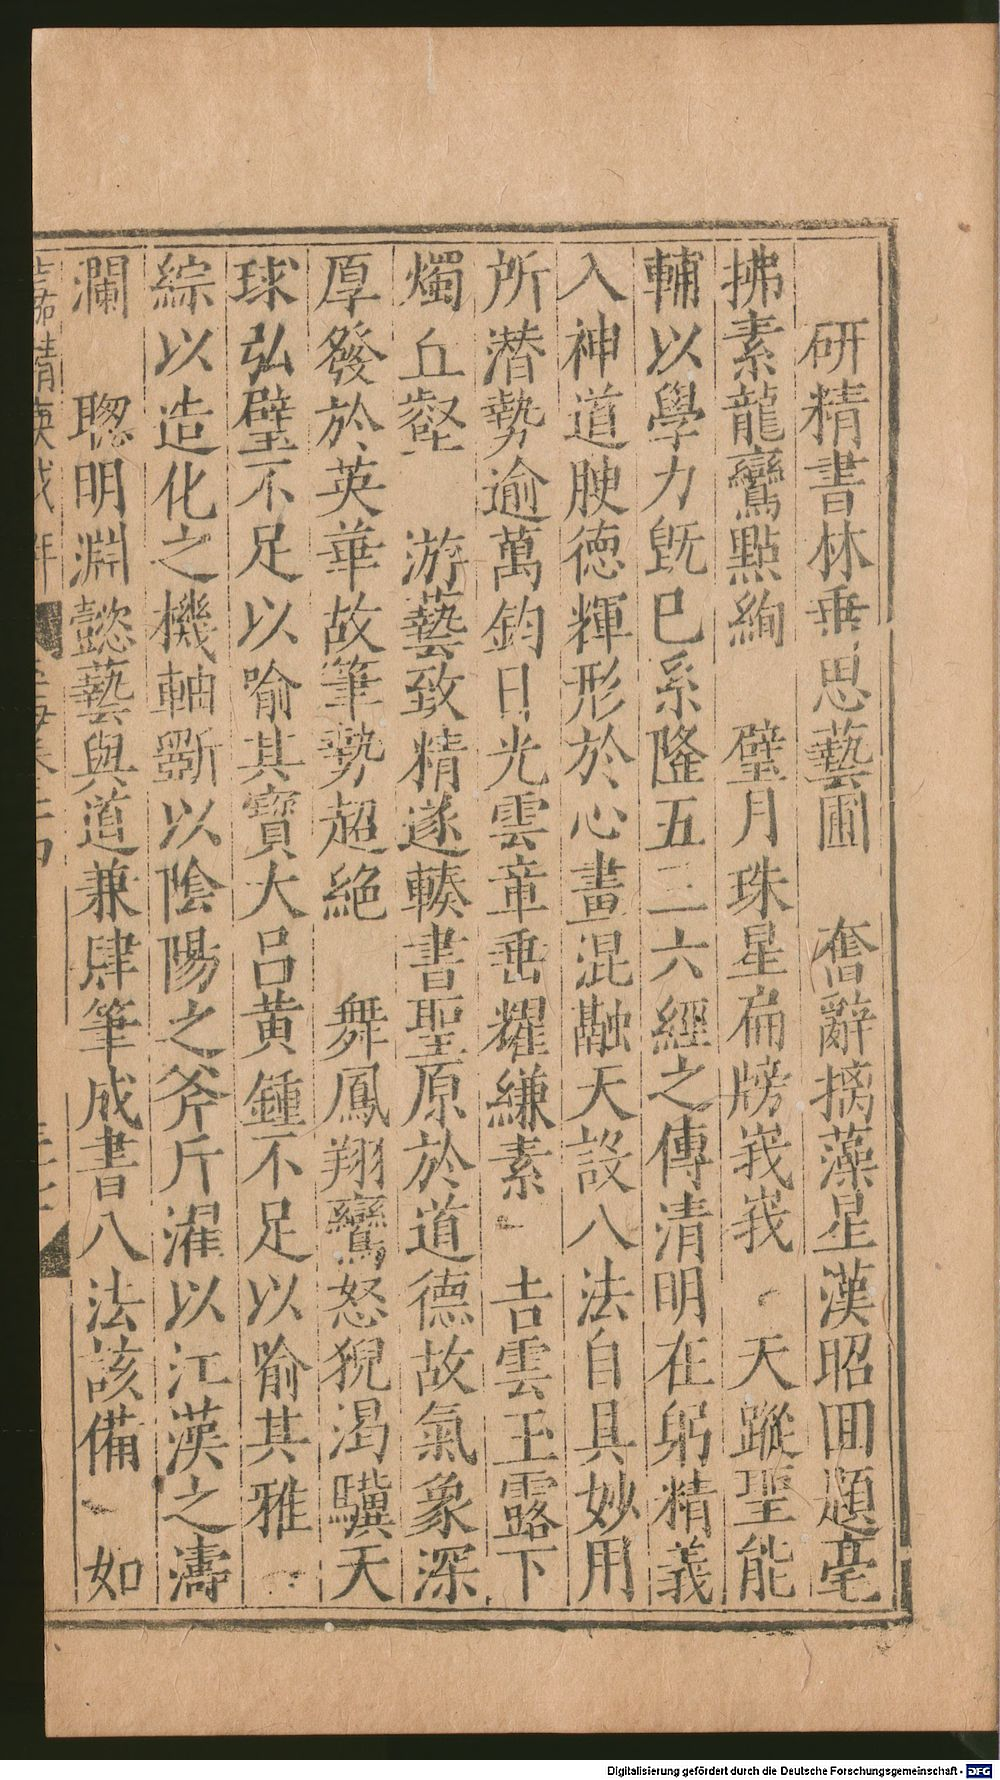 研精書林垂思藝圃　奮辭摛藻星漢昭回題毫
拂素龍鸞點絢　璧月珠星扁牓峩峩　天蹤聖能
輔以學力旣已系隆五三六經之傳清明在躬精義
入神道腴德輝形於心畫混融天設八法自具妙用
所潛勢逾萬鈞日光雲章垂耀縑素　吉雲玉露下
燭丘壑　游藝致精遂轃書聖原於道德故氣象深
厚發於英華故筆勢超絕　舞鳳翔鸞怒猊渴驥天
球弘璧不足以喻其寶大呂黃鍾不足以喻其雅
綜以造化之機軸斵以陰陽之斧斤濯以江漢之濤
瀾　聦明淵懿藝與道兼肆筆成書八法該備　如
Digitalisierung gefördert durch die Deutsche Forschungsgemeinschaft - DFG